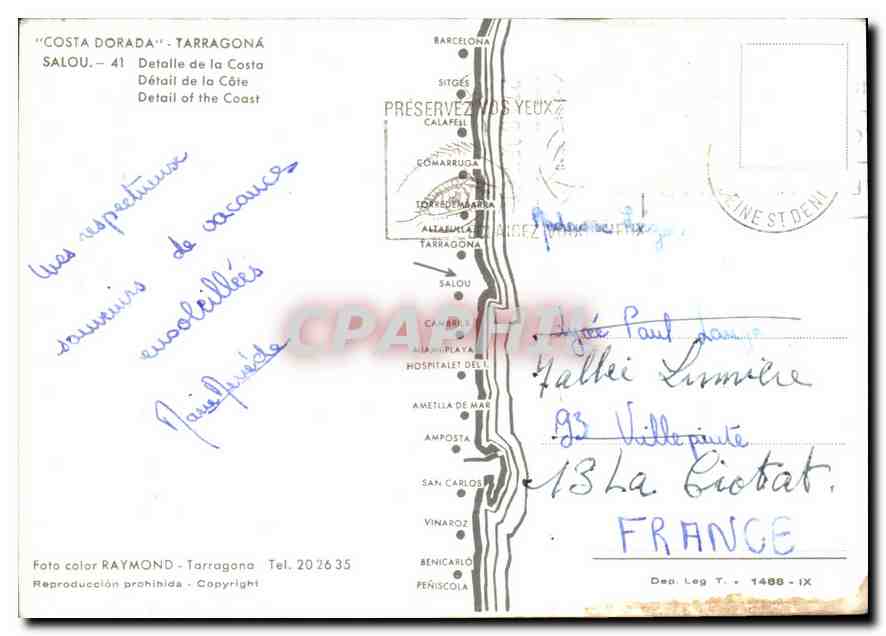 "COSTA DORADA" - TARRAGONÁ
SALOU. - 41 Detalle de la Costa
Détail de la Côte
Detail of the Coast
Mes respectueux
souvenirs de vacances
ensoleillées
Foto color RAYMOND - Tarragona Tel. 20 26 35
Reproducción prohibida - Copyright
BARCELONA
SITGES
CALAFELL
COMARRUGA
TORREDEMBARRA
ALTAFULLA
TARRAGONA
SALOU
CAMBRILS
MIAMI PLAYA
HOSPITALET DEL I.
AMETLLA DE MAR
AMPOSTA
SAN CARLOS
VINAROZ
BENICARLÓ
PEÑISCOLA
PRÉSERVEZ VOS YEUX
SEINE ST DENI
Lycée Paul
7 allée Lumière
93 Villepinte
13 La Ciotat.
FRANCE
Dep. Leg T. - 1488 - IX
CPAPHIL